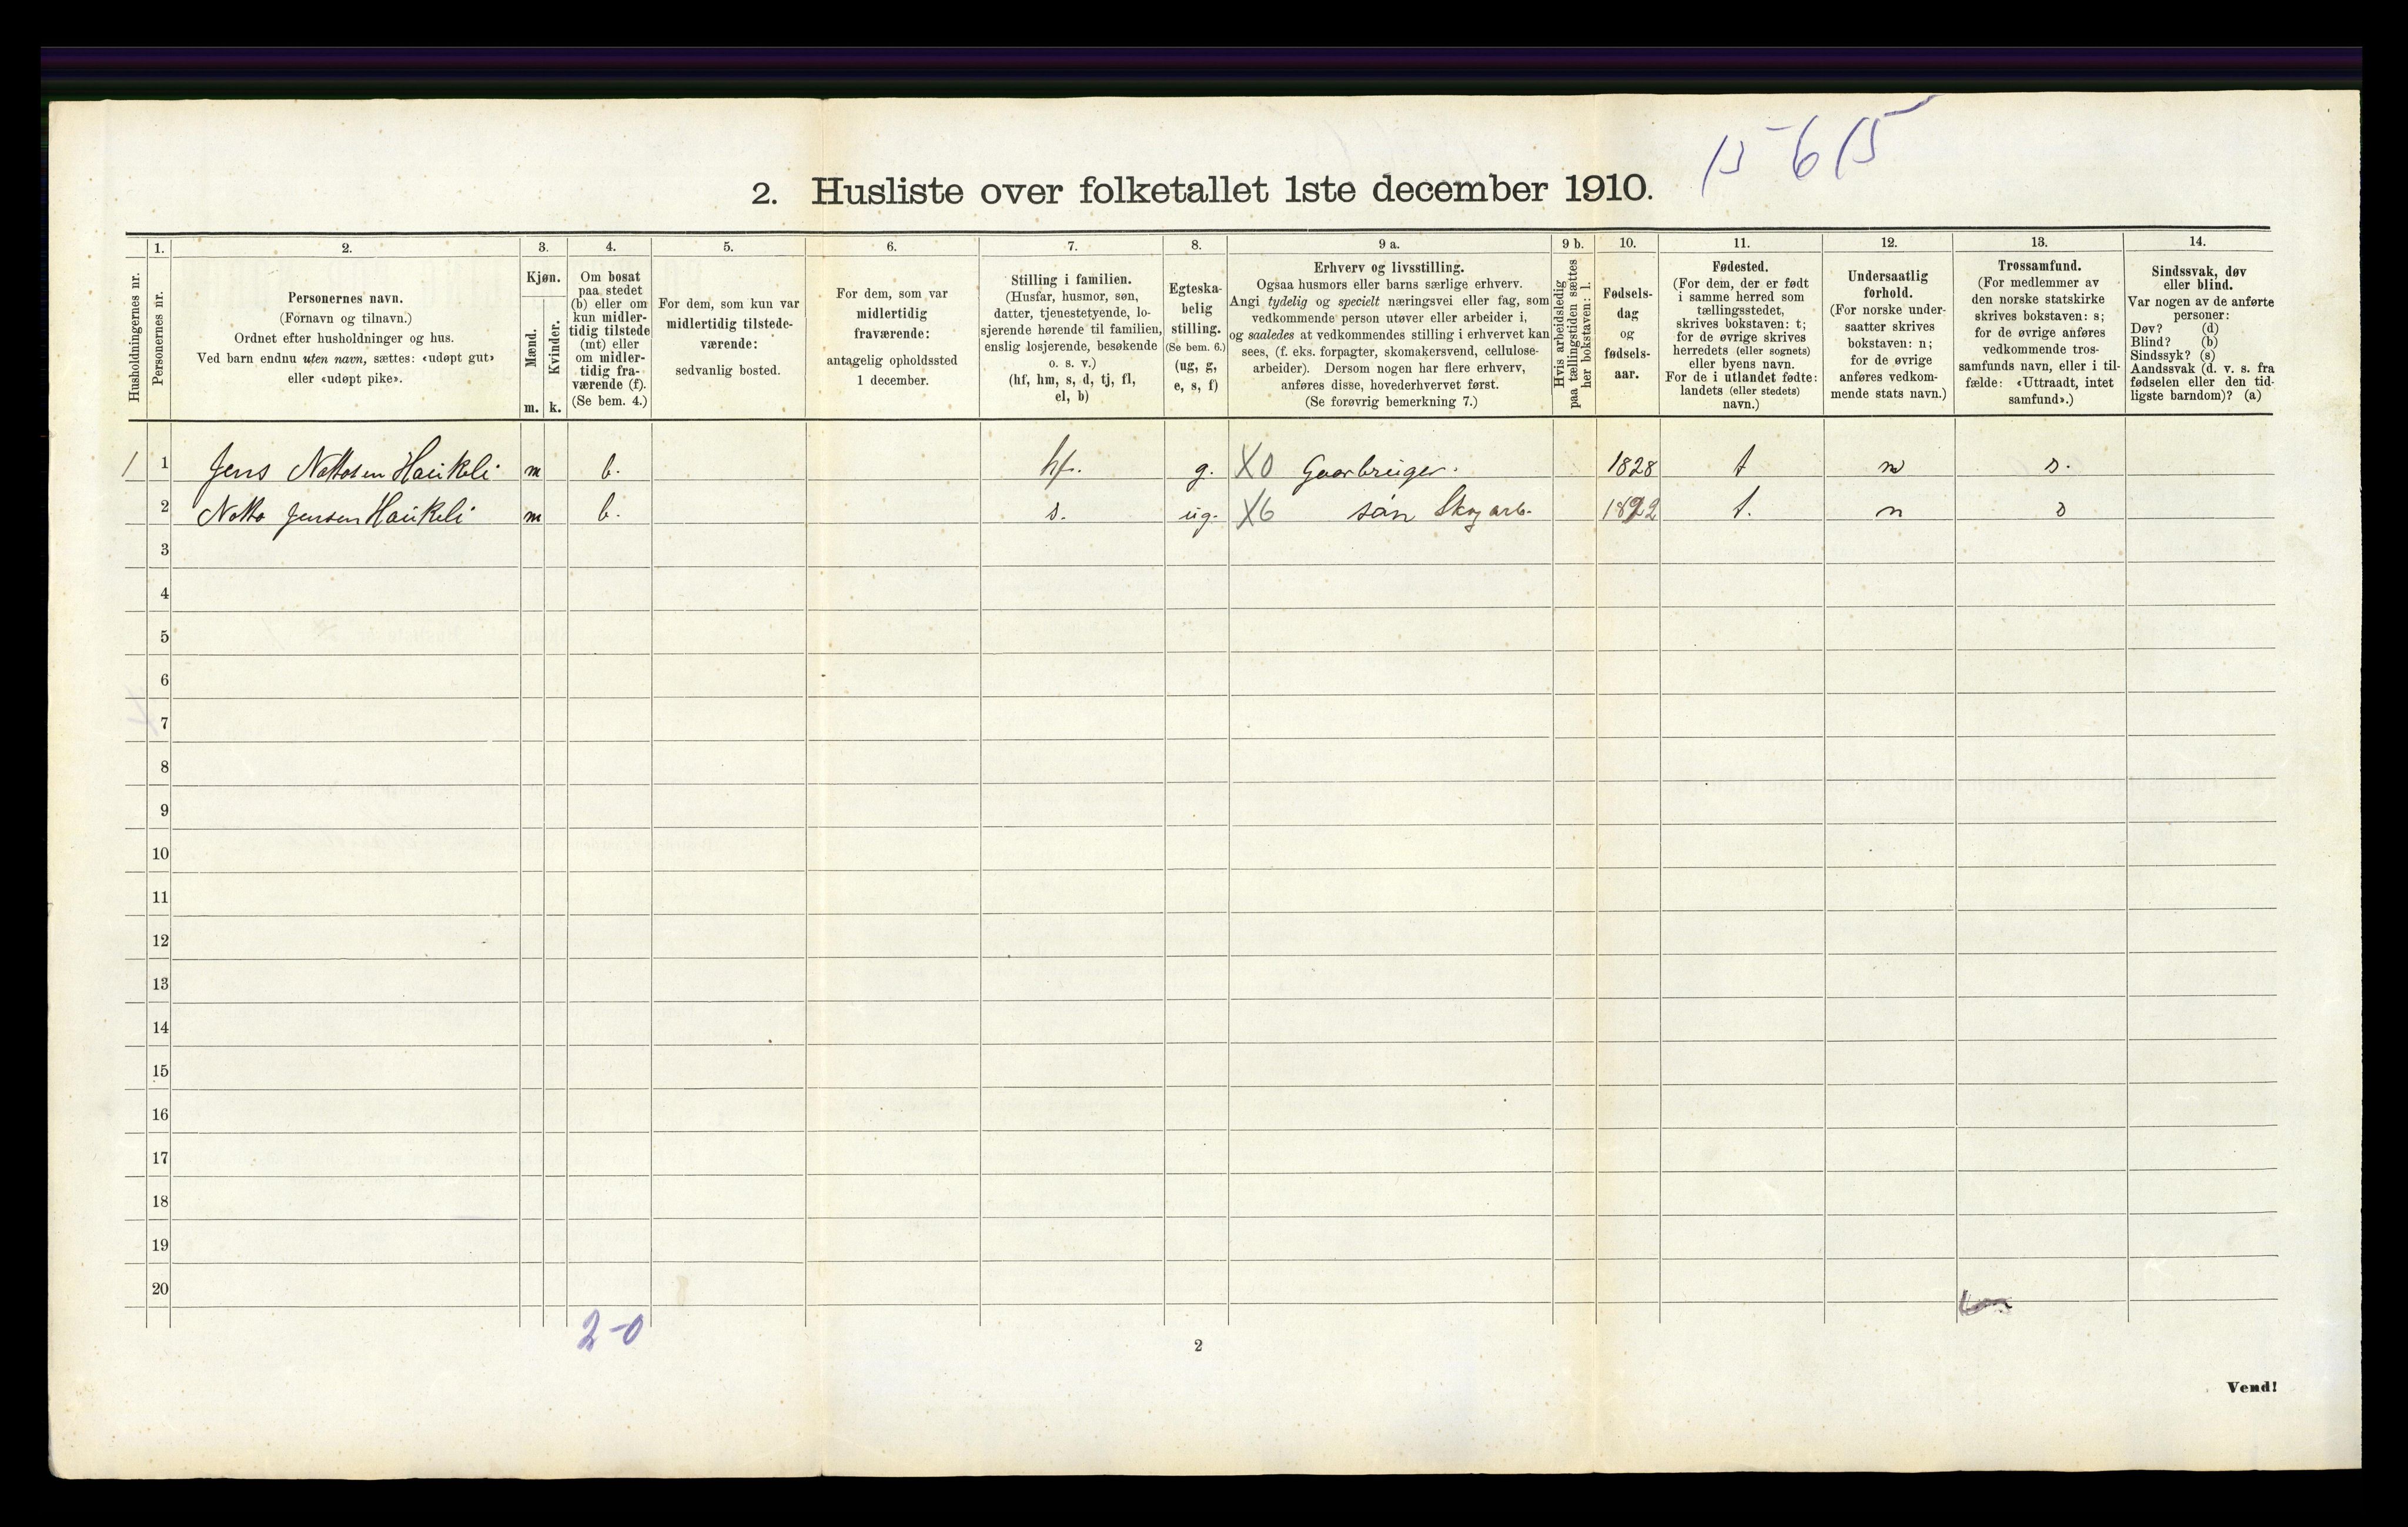 15-615
2. Husliste over folketallet 1ste december 1910.
Husholdningernes nr.
1.
Personernes nr.
2.
Personernes navn.
(Fornavn og tilnavn.)
Ordnet efter husholdninger og hus.
Ved barn endnu uten navn, sættes: «udøpt gut»
eller «udøpt pike».
3.
Kjøn.
Mænd.
Kvinder.
m. k.
4.
Om bosat
paa stedet
(b) eller om
kun midler-
tidig tilstede
(mt) eller
om midler-
tidig fra-
værende (f).
(Se bem. 4.)
5.
For dem, som kun var
midlertidig tilstede-
værende:
sedvanlig bosted.
6.
For dem, som var
midlertidig
fraværende:
antagelig opholdssted
1 december.
7.
Stilling i familien.
(Husfar, husmor, søn,
datter, tjenestetyende, lo-
sjerende hørende til familien,
enslig losjerende, besøkende
o. s. v.)
(hf, hm, s, d, tj, fl,
el, b)
8.
Egteska-
belig
stilling.
(Se bem. 6.)
(ug, g,
e, s, f)
9 a.
Erhverv og livsstilling.
Ogsaa husmors eller barns særlige erhverv.
Angi tydelig og specielt næringsvei eller fag, som
vedkommende person utøver eller arbeider i,
og saaledes at vedkommendes stilling i erhvervet kan
sees, (f. eks. forpagter, skomakersvend, cellulose-
arbeider). Dersom nogen har flere erhverv,
anføres disse, hovederhvervet først.
(Se forøvrig bemerkning 7.)
9 b.
Hvis arbeidsledig
paa tællingstiden sættes
her bokstaven: l.
10.
Fødsels-
dag
og
fødsels-
aar.
11.
Fødested.
(For dem, der er født
i samme herred som
tællingsstedet,
skrives bokstaven: t;
for de øvrige skrives
herredets (eller sognets)
eller byens navn.
For de i utlandet fødte:
landets (eller stedets)
navn.)
12.
Undersaatlig
forhold.
(For norske under-
saatter skrives
bokstaven: n;
for de øvrige
anføres vedkom-
mende stats navn.)
13.
Trossamfund.
(For medlemmer av
den norske statskirke
skrives bokstaven: s;
for de øvrige anføres
vedkommende tros-
samfunds navn, eller i til-
fælde: «Uttraadt, intet
samfund».)
14.
Sindssvak, døv
eller blind.
Var nogen av de anførte
personer:
Døv? (d)
Blind? (b)
Sindssyk? (s)
Aandssvak (d. v. s. fra
fødselen eller den tid-
ligste barndom)? (a)
1 1 Jens Nottosen Haukeli m b. hf. g. X0 Gaarbruger. 1828 t n s.
2 Notto Jensen Haukeli m b. s. ug. X6 søn Skogarb. t. n s
3
4
5
6
7
8
9
10
11
12
13
14
15
16
17
18
19
20
2-0
2
Vend!